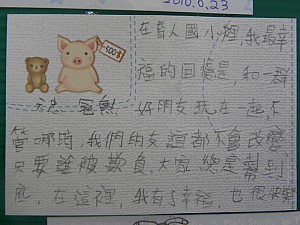 2010.6.23
在育人國小裡,我最幸
500元
福的回憶是,和一群
好朋友玩在一起,不
管哪時,我們的友誼都不會改變
只要誰被欺負,大家總是幫到
底,在這裡,我有了幸福,也很快樂